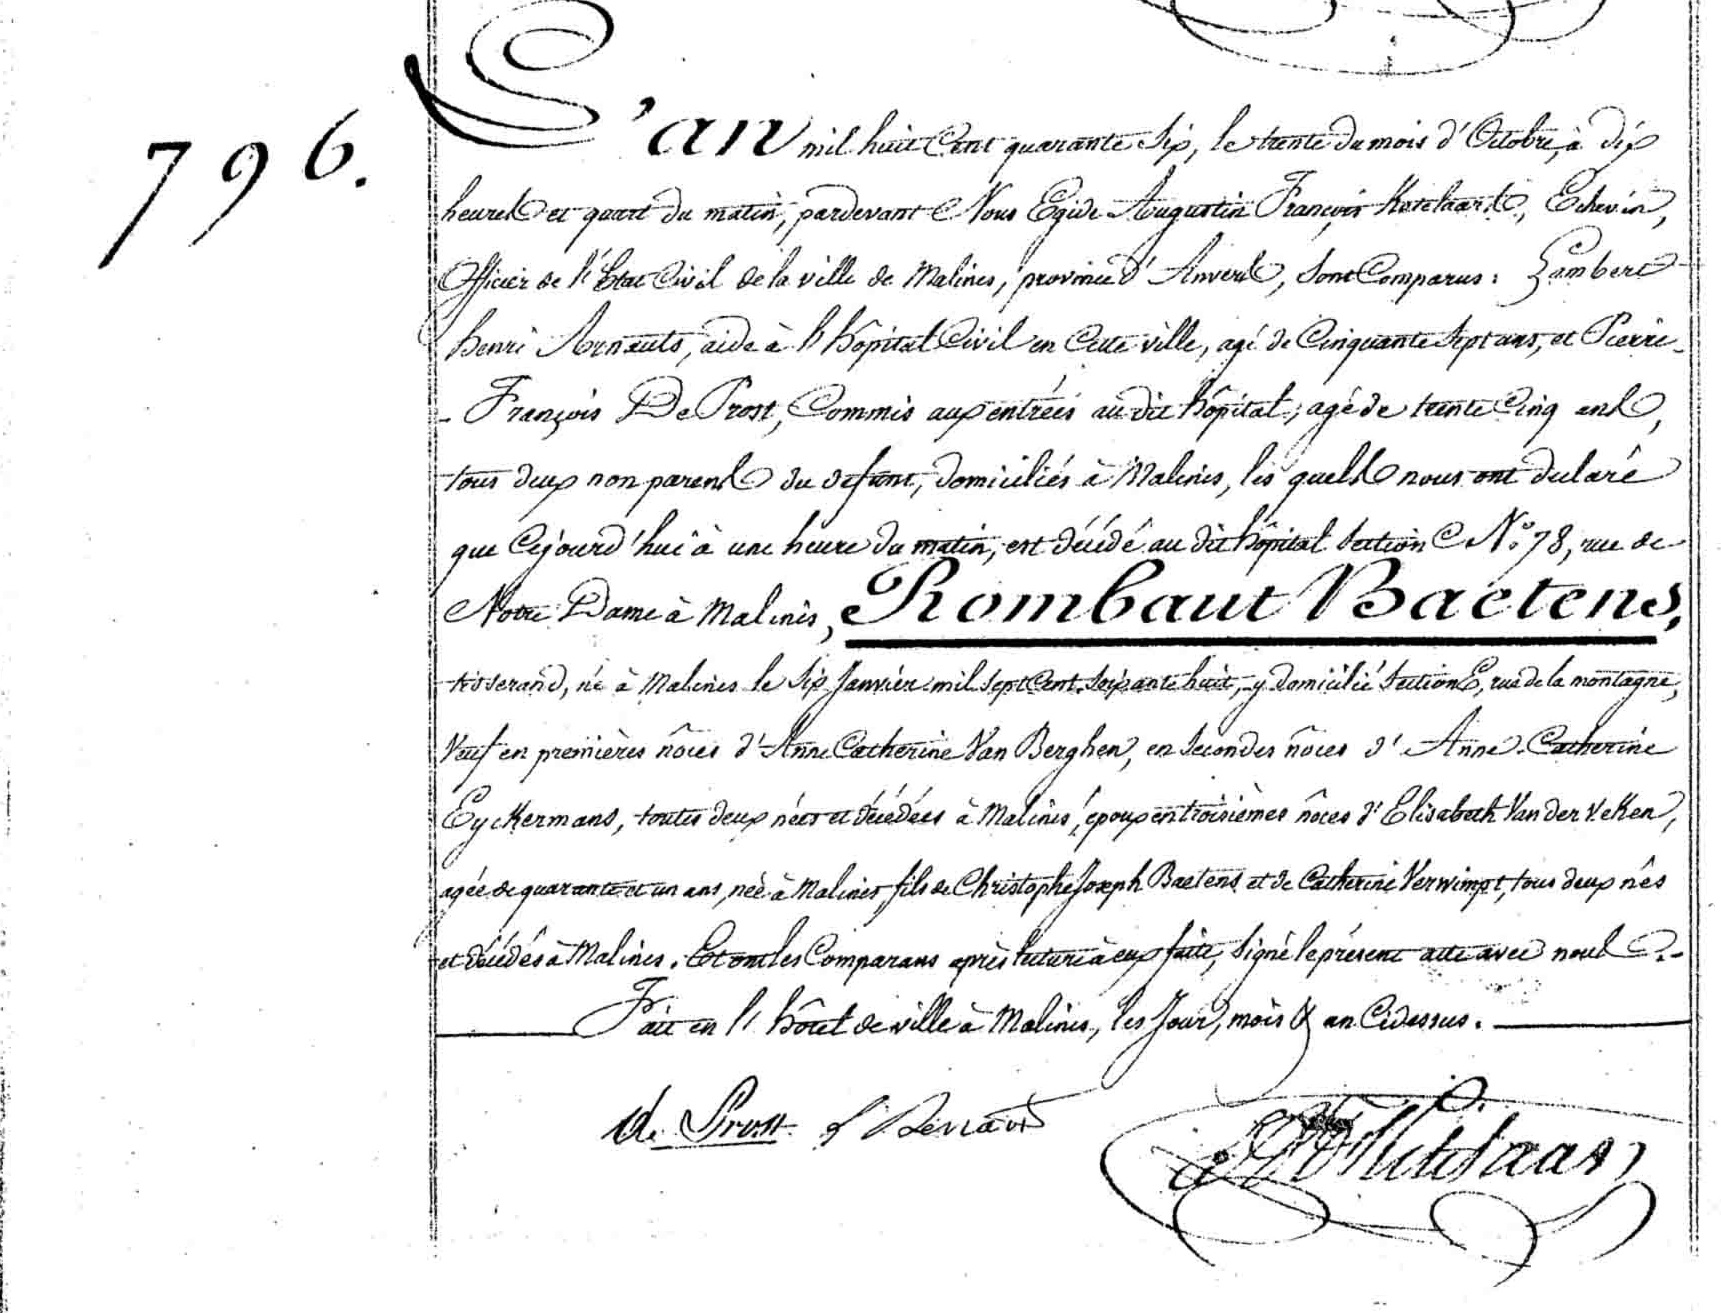 796.
L'an mil huit Cent quarante Six, le trente du mois d'Octobre, à dix
heures et quart du matin, pardevant Nous Egide Augustin François Ketelaars, Echevin,
Officier de l'Etat Civil de la ville de Malines, province d'Anvers, Sont Comparus: Lambert
henri Arnauts, aide à l'hôpital Civil en Cette ville, agé de Cinquante Sept ans, et Pierre-
-François De Prost, Commis aux entrées au dit hôpital, agé de trente Cinq ans,
tous deux non parens du defunt, domiciliés à Malines, les quels nous ont declaré
que Cejourd'hui à une heure du matin, est décédé au dit hôpital Section C N.° 78, rue de
Notre Dame à Malines, Rombaut Baetens,
tisserand, né à Malines le Six Janvier mil Sept Cent Soixante huit, y domicilié Section E, rue de la montagne,
Veuf en premières nôces d'Anne Catherine Van Berghen, en Secondes nôces d'Anne Catherine
Eyckermans, toutes deux nées et décédées à Malines, époux en troisièmes nôces d'Elisabeth Van der Veken,
agée de quarante et un ans, née à Malines, fils de Christophe Joseph Baetens et de Catherine Verwimpt, tous deux nés
et décédés à Malines. Et ont les Comparans après lecture à eux faite, Signé le présent acte avec nous.-
Fait en l'hôtel de ville à Malines, les Jour, mois & an Cidessus.
de Prost